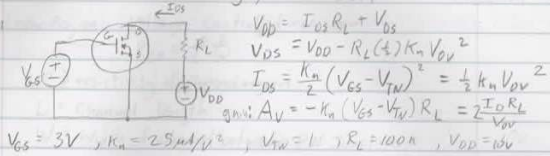 I_DS
G
D
S
R_L
V_GS
V_DD
V_DD = I_DS R_L + V_DS
V_DS = V_DD - R_L (½) K_n V_OV²
I_DS = K_n/2 (V_GS - V_TN)² = ½ K_n V_OV²
gain: A_V = -K_n (V_GS - V_TN) R_L = 2 I_D R_L / V_OV
V_GS = 3V, K_n = 25 µA/V², V_TN = 1, R_L = 100n, V_DD = 10V